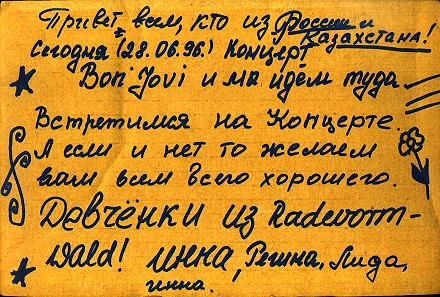 Привет всем, кто из России и
Казахстана!
Сегодня (28.06.96.) Концерт
Bon Jovi и мы идём туда.
Встретимся на Концерте.
А если и нет то желаем
вам всем всего хорошего.
Девчёнки из Radevorm-
wald! Инна, Регина, Лида,
инна.